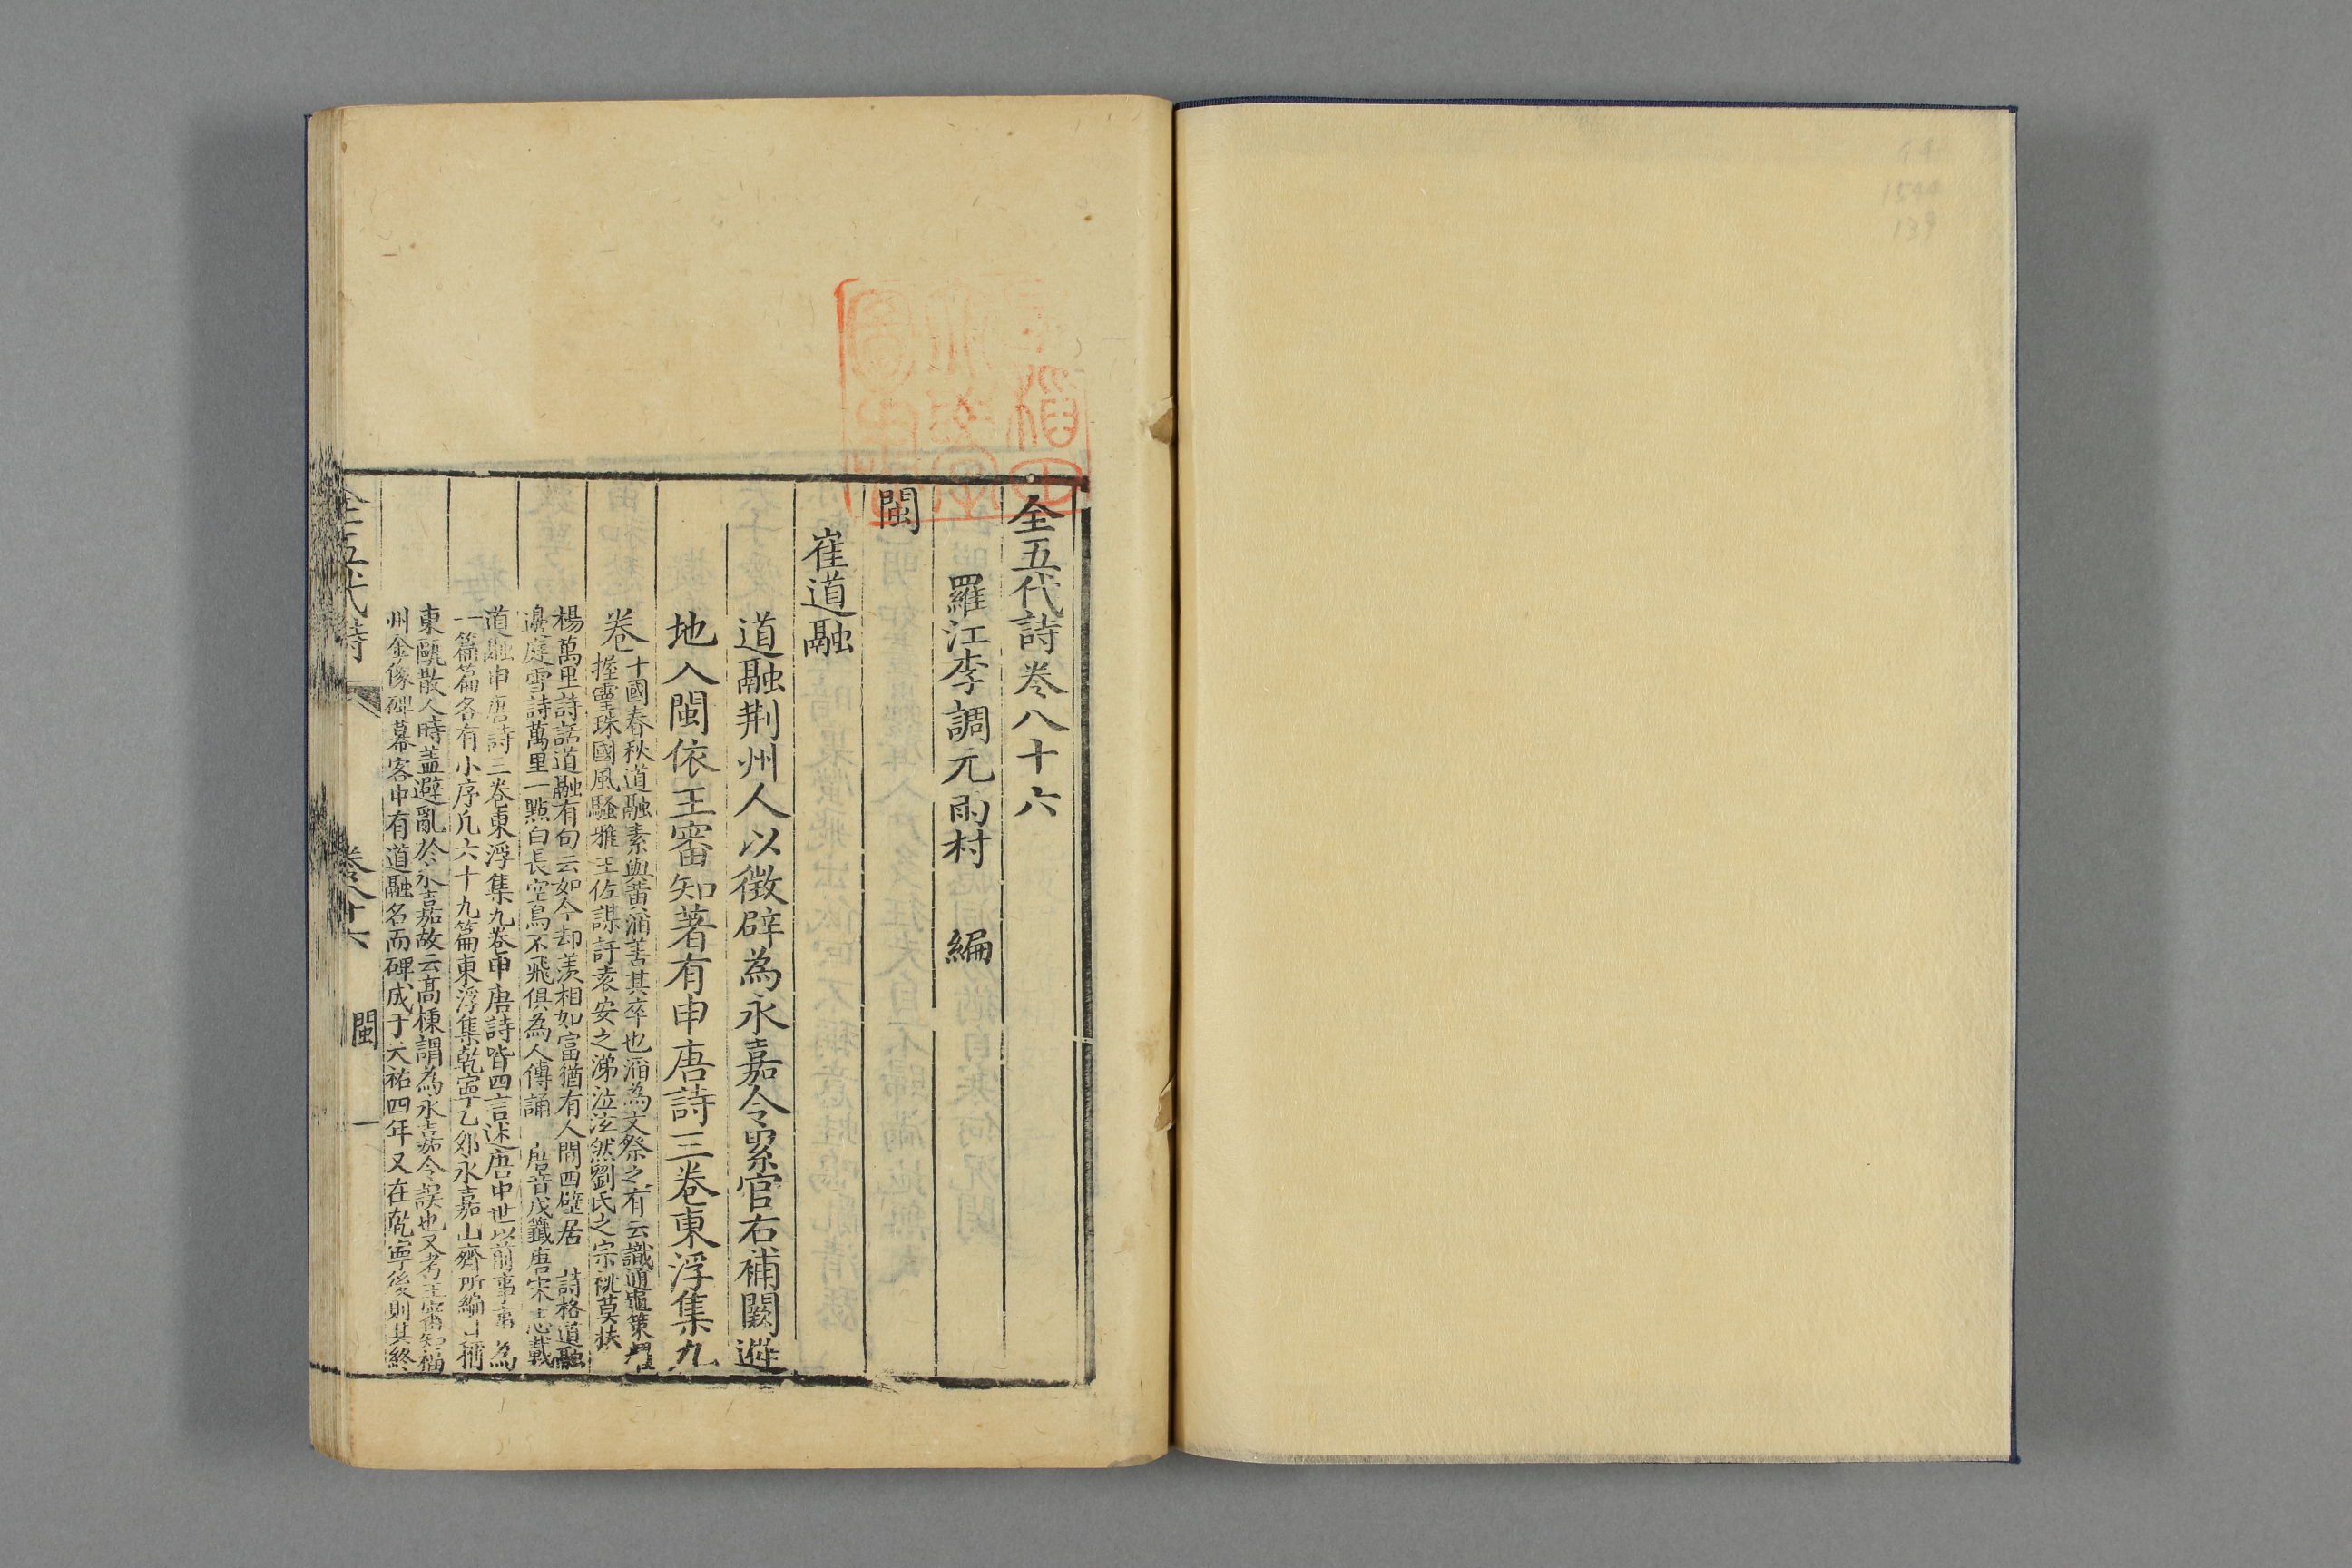 全五代詩卷八十六
羅江李調元雨村　編
閩
崔道融
道融荆州人以徵辟為永嘉令累官右補闕避
地入閩依王審知著有申唐詩三卷東浮集九
卷
十國春秋道融素與黃滔善其卒也滔為文祭之有云識通龜策門
握靈珠國風騷雅王佐謀訏袁安之涕泣泫然劉氏之宗祧莫扶
楊萬里詩話道融有句云如今却羨相如富猶有人間四壁居　詩格道融
邊庭雪詩萬里一點白長空鳥不飛俱為人傳誦　唐音戊籤唐宋志載
道融申唐詩三卷東浮集九卷申唐詩皆四言述唐中世以前事事為
一篇篇各有小序凡六十九篇東浮集乾寧乙卯永嘉山齋所編自稱
東甌散人時盖避亂於永嘉故云高棟謂為永嘉令誤也又考王審知福
州金像碑幕客中有道融名而碑成于天祐四年又在乾寧後則其終
全五代詩　卷八十六　閩　一